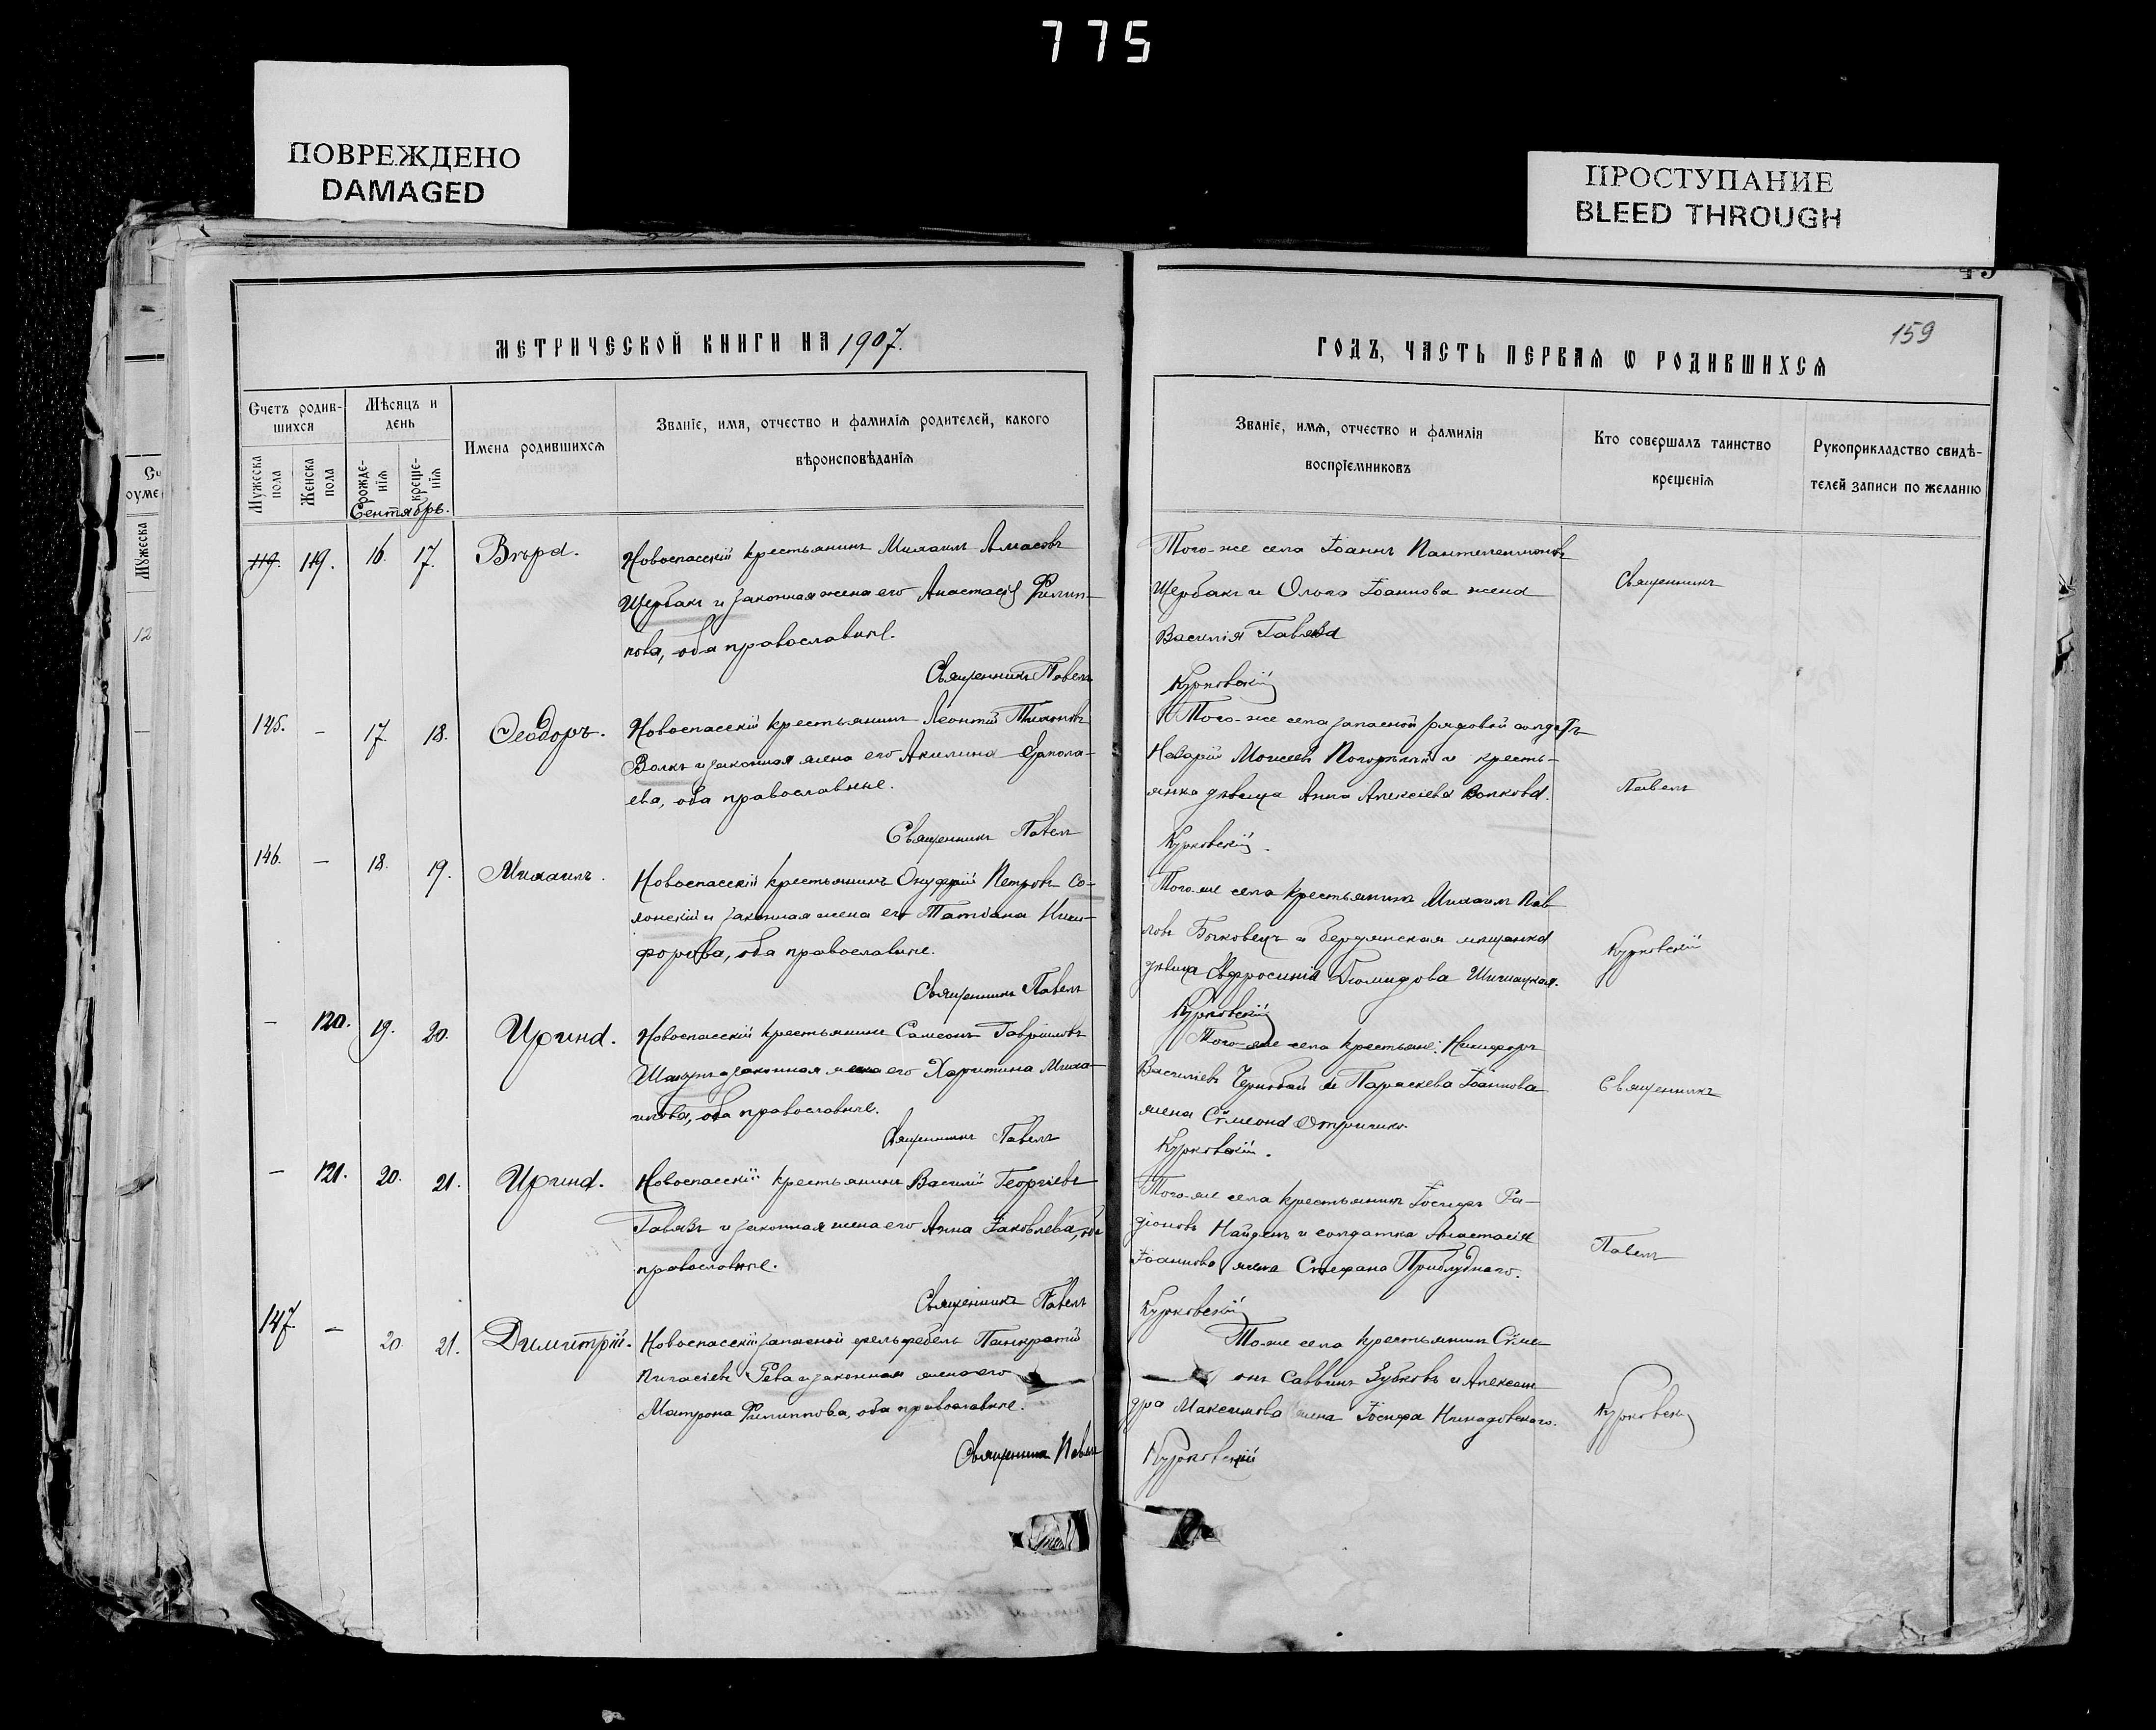 775
ПОВРЕЖДЕНО
DAMAGED
ПРОСТУПАНИЕ
BLEED THROUGH
МЕТРИЧЕСКОЙ КНИГИ НА 1907.
Счетъ родив-
шихся
Мѣсяцъ и
день
Имена родившихся
Званіе, имя, отчество и фамилія родителей, какого
вѣроисповѣданія
Мужеска
пола
Женска
пола
рожде-
нія
креще-
нія
Сентябрь.
119. 119. 16. 17. Вѣра.
Новоспасскій крестьянинъ Михаилъ
Щербакъ и законная жена его Анастасія Филип-
пова, оба православные.
Священникъ Павелъ
145. - 17. 18. Ѳеодоръ.
Новоспасскій крестьянинъ Леонтій Тихоновъ
Волкъ и законная жена его Акилина Ермола-
ева, оба православные.
Священникъ Павелъ
146. - 18. 19. Михаилъ.
Новоспасскій крестьянинъ Онуфрій Петровъ Со-
лонскій и законная жена его Татіана Ники-
форова, оба православные.
Священникъ Павелъ
- 120. 19. 20. Ирина.
Новоспасскій крестьянинъ Самсонъ Гавріиловъ
и законная жена его Харитина Миха-
илова, оба православные.
Священникъ Павелъ
- 121. 20. 21. Ирина.
Новоспасскій крестьянинъ Василій Георгіевъ
Гавязъ и законная жена его Анна Іаковлева, оба
православные.
Священникъ Павелъ
147. - 20. 21. Димитрій.
Новоспасскій запасной фельдфебель Панкратій
Рева и законная жена его
Матрона Филиппова, оба православные.
Священникъ Павелъ
159
ГОДЪ, ЧАСТЬ ПЕРВАЯ Ѡ РОДИВШИХСЯ
Званіе, имя, отчество и фамилія
воспріемниковъ
Кто совершалъ таинство
крещенія
Рукоприкладство свидѣ-
телей записи по желанію
Того-же села Іоаннъ Пантелеимоновъ
Щербакъ и Ольга Іоаннова жена
Василія Гавяза
Курковскій
Священникъ
Того-же села запасной рядовой солдатъ
Назарій Моисеевъ Погорѣлый и кресть-
янка дѣвица Анна Алексіева Волкова.
Курковскій.
Павелъ
Того-же села крестьянинъ Михаилъ Пав
ловъ Быковецъ и бердянская мѣщанка
дѣвица Евфросинія Діомидова
Курковскій
Курковскій
Того-же села крестьяне: Никифоръ
Василіевъ и Параскева Іоаннова
жена Сѵмеона
Курковскій.
Священникъ
Того-же села крестьянинъ Іосифъ Ра-
діоновъ Найденъ и солдатка Анастасія
Іоаннова жена Стефана Приблуднаго.
Курковскій
Павелъ
То-же села крестьянинъ Сѵме-
онъ Саввинъ Зубковъ и Алексан-
дра Максимова жена Іосифа
Курковскій
Курковскій
Мужеска
12